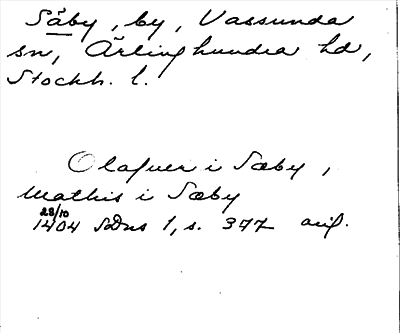 Såby, by, Vassunda
sn, Ärlinghundra hd,
Stockh. l.
Olafuer i Sæby,
Mathis i Sæby
28/10
1404 SDns 1, s. 377 avs.